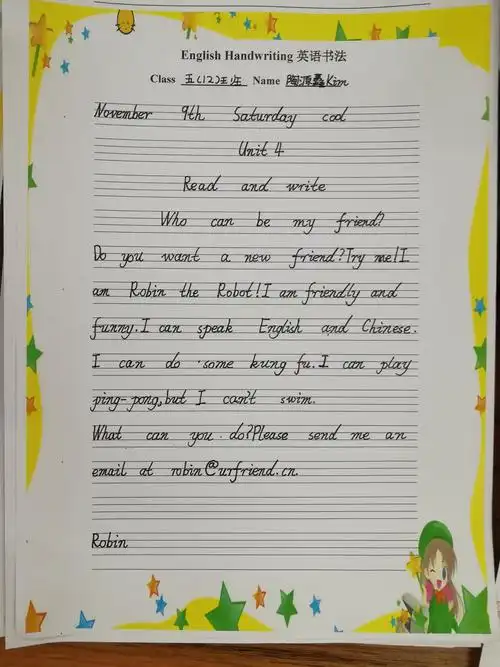 English Handwriting 英语书法
Class 五(12)班 Name 陶源鑫Kim
November 9th Saturday cool
Unit 4
Read and write
Who can be my friend?
Do you want a new friend?Try me!I
am Robin the Robot!I am friendly and
funny.I can speak English and Chinese.
I can do some kung fu.I can play
ping-pong,but I can't swim.
What can you do?Please send me an
email at robin@urfriend.cn.
Robin